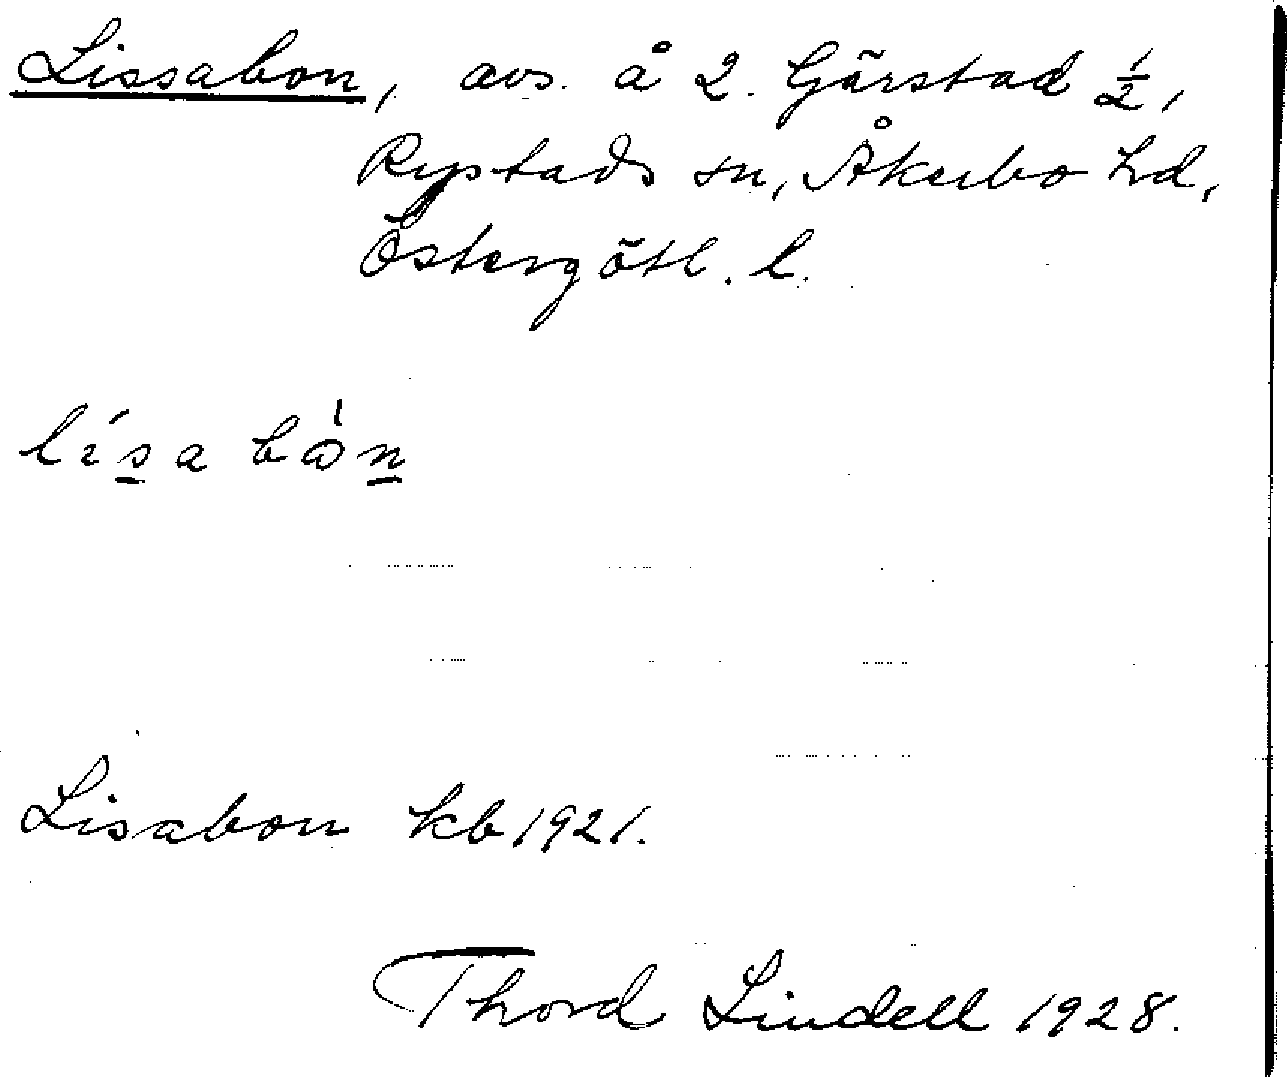 Lissabon, avs. å 2. Gärstad ½,
Rystads sn, Åkerbo hd,
Östergötl. l.
lísa bån
Lisabon kb 1921.
Thord Lindell 1928.